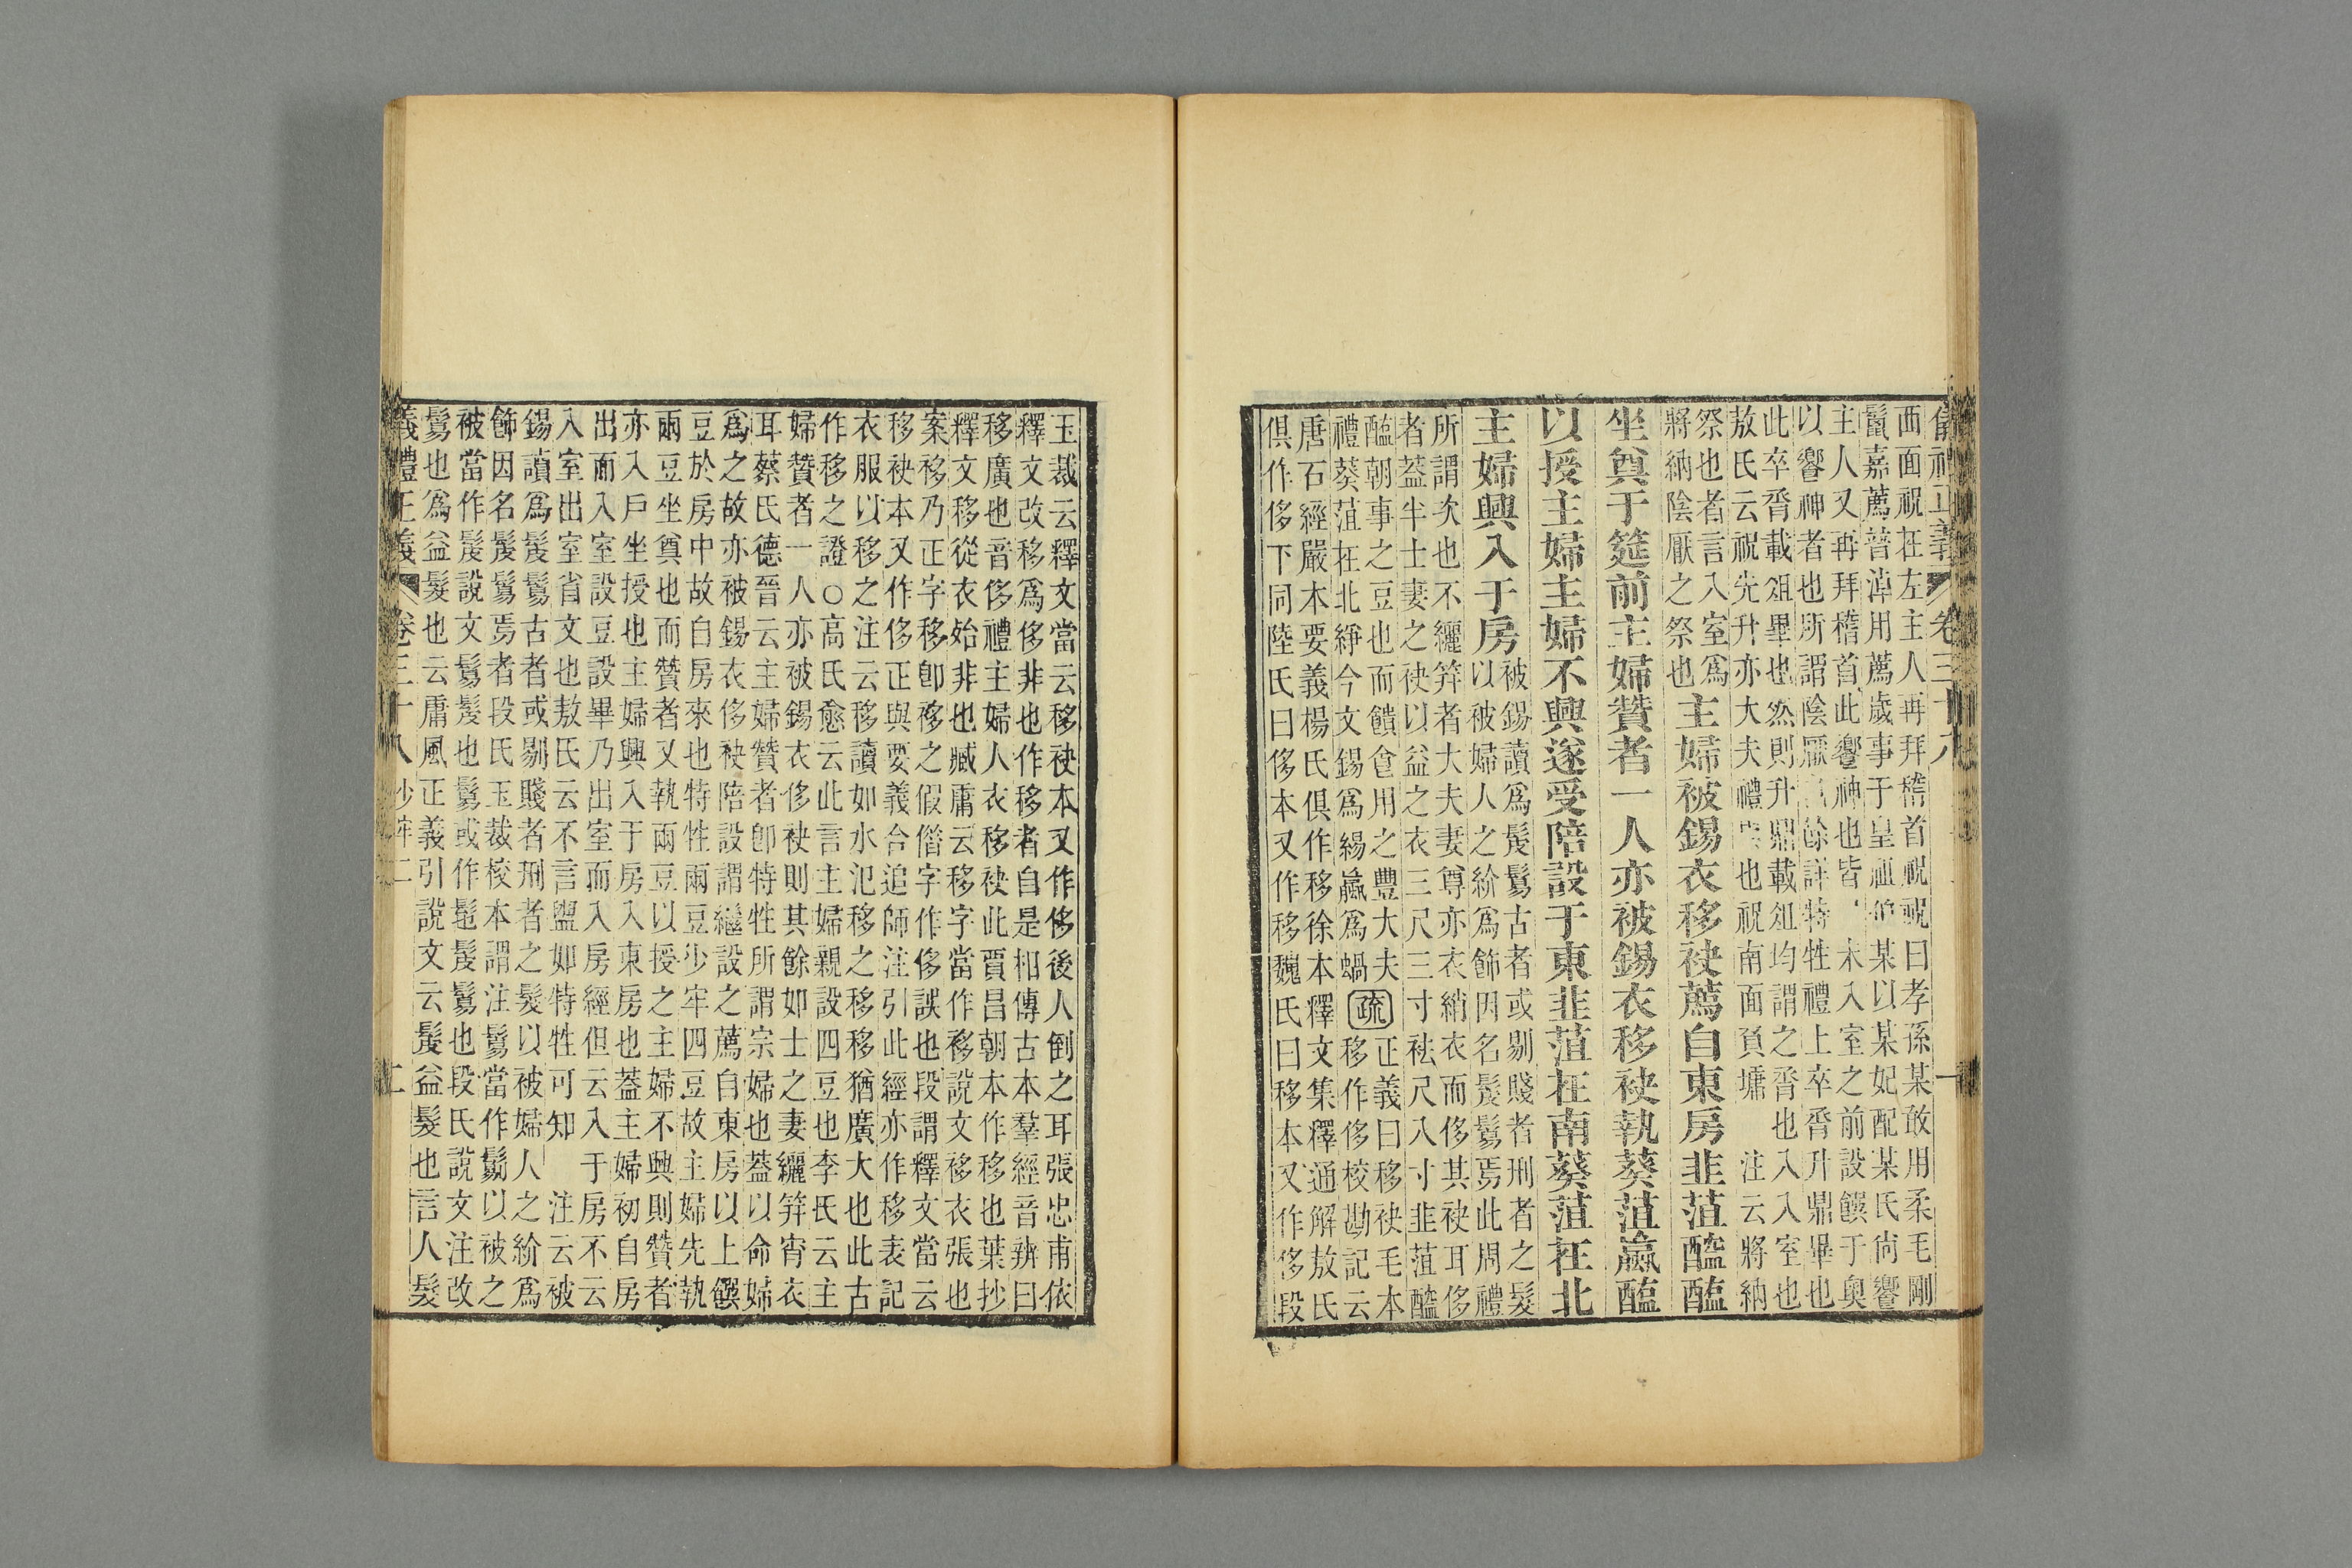 儀禮正義 卷三十八
西面祝在左主人再拜稽首祝祝曰孝孫某敢用柔毛剛
鬣嘉薦普淖用薦歲事于皇祖伯某以某妃配某氏尙饗
主人又再拜稽首此饗神也皆未入室之前設饌于奧
以饗神者也所謂陰厭餘詳特牲禮上卒脀升鼎畢也
此卒脀載俎畢也然則升鼎載俎均謂之脀也入入室也
敖氏云祝先升亦大夫禮也祝南面負墉 注云將納
祭也者言入室爲
將納陰厭之祭也
主婦被錫衣移袂薦自東房韭菹醓醢
坐奠于筵前主婦贊者一人亦被錫衣移袂執葵菹蠃醢
以授主婦主婦不興遂受陪設于東韭菹在南葵菹在北
主婦興入于房
被錫讀爲髲鬄古者或剔賤者刑者之髮
以被婦人之紒爲飾因名髲鬄焉此周禮
所謂次也不纚笄者大夫妻尊亦衣綃衣而侈其袂耳侈
者蓋半士妻之袂以益之衣三尺三寸袪尺八寸韭菹醓
醢朝事之豆也而饋食用之豐大夫
禮葵菹在北綪今文錫爲緆蠃爲蝸
疏
正義曰移袂毛本
移作侈校勘記云
唐石經嚴本要義楊氏俱作移徐本釋文集釋通解敖氏
俱作侈下同陸氏曰侈本又作移魏氏曰移本又作侈段
玉裁云釋文當云移袂本又作侈後人倒之耳張忠甫依
釋文改移爲侈非也作移者自是相傳古本羣經音辨曰
移廣也音侈禮主婦人衣移袂此賈昌朝本作移也葉抄
釋文移從衣始非也臧庸云移字當作袳說文袳衣張也
案移乃正字移卽袳之假借字作侈誤也段謂釋文當云
移袂本又作侈正與要義合追師注引此經亦作移表記
衣服以移之注云移讀如水氾移之移移猶廣大也此古
作移之證○高氏愈云此言主婦親設四豆也李氏云主
婦贊者一人亦被錫衣侈袂則其餘如士之妻纚笄宵衣
耳蔡氏德晉云主婦贊者卽特牲所謂宗婦也蓋以命婦
爲之故亦被錫衣侈袂陪設謂繼設之薦自東房以上饌
豆於房中故自房來也特牲兩豆少牢四豆故主婦先執
兩豆坐奠也而贊者又執兩豆以授之主婦不興則贊者
亦入戶坐授也主婦興入于房入東房也蓋主婦初自房
出而入室設豆設畢乃出室而入房經但云入于房不云
入室出室省文也敖氏云不言盥如特牲可知 注云被
錫讀爲髲鬄古者或剔賤者刑者之髮以被婦人之紒爲
飾因名髲鬄焉者段氏玉裁校本謂注鬄當作鬍以被之
被當作髲說文鬄髲也鬄或作髢髲鬄也段氏說文注改
鬄也爲益髮也云庸風正義引說文云髲益髮也言人髮
儀禮正義 卷三十八 少牢二 二